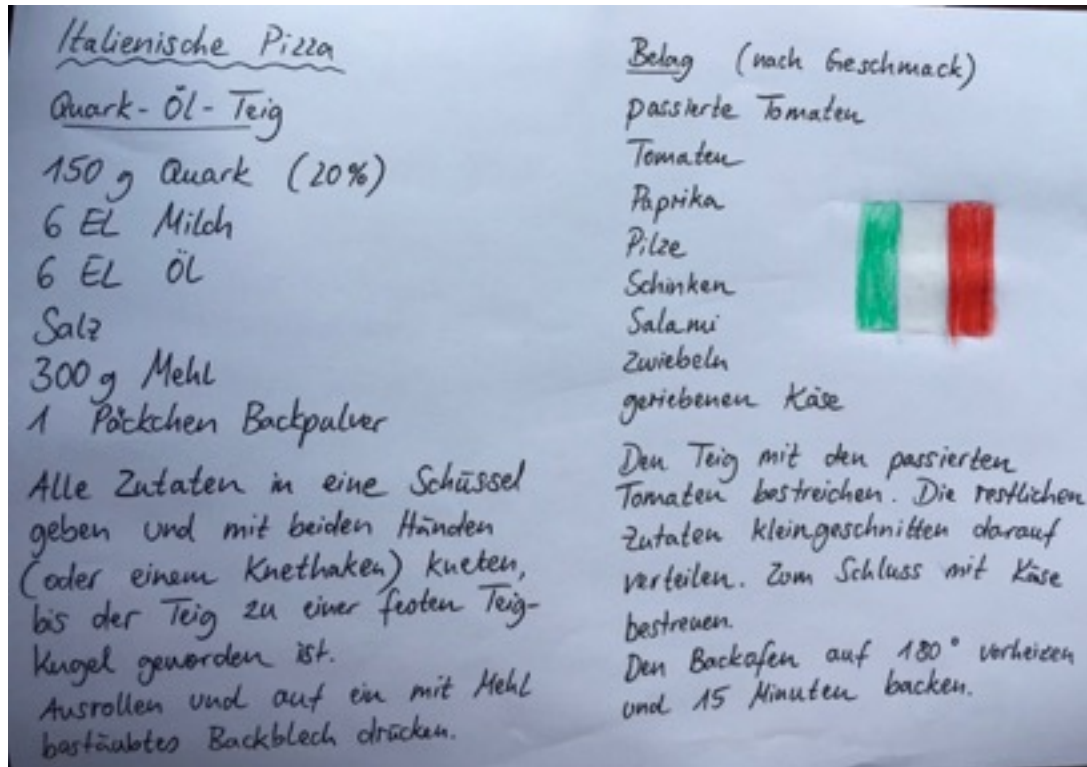 Italienische Pizza
Quark-Öl-Teig
150 g Quark (20%)
6 EL Milch
6 EL Öl
Salz
300 g Mehl
1 Päckchen Backpulver
Alle Zutaten in eine Schüssel
geben und mit beiden Händen
(oder einem Knethaken) kneten,
bis der Teig zu einer festen Teig-
kugel geworden ist.
Ausrollen und auf ein mit Mehl
bestäubtes Backblech drücken.
Belag (nach Geschmack)
passierte Tomaten
Tomaten
Paprika
Pilze
Schinken
Salami
Zwiebeln
geriebenen Käse
Den Teig mit den passierten
Tomaten bestreichen. Die restlichen
Zutaten kleingeschnitten darauf
verteilen. Zum Schluss mit Käse
bestreuen.
Den Backofen auf 180° vorheizen
und 15 Minuten backen.